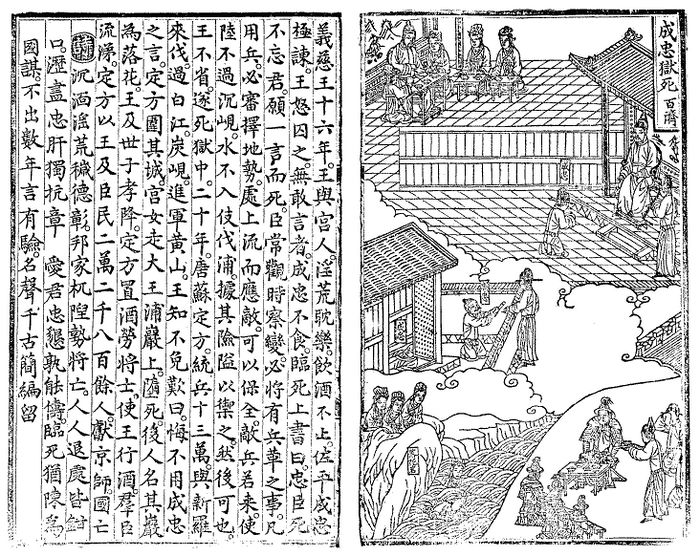 成忠獄死 百濟
義慈王十六年。王與宮人。淫荒耽樂。飲酒不止。佐平成忠
極諫。王怒囚之。無敢言者。成忠不食。臨死上書曰。忠臣死
不忘君。願一言而死。臣常觀時察變。必將有兵革之事。凡
用兵。必審擇地勢。處上流而應敵。可以保全。敵兵若來。使
陸不過沉峴。水不入伎伐浦。據其險隘以禦之。然後可也。
王不省。遂死獄中。二十年。唐蘇定方。統兵十三萬。與新羅
來伐。過白江。炭峴。進軍黃山。王知不免。歎曰。悔不用成忠
之言。定方圍其城。宮女走大王浦巖上。隨死。後人名其巖
為落花。王及世子孝降。定方置酒勞將士。使王行酒。群臣
流涕。定方以王及臣民二萬二千八百餘人。獻京師。國亡
詩 沉湎淫荒穢德彰。邦家杌隉勢將亡。人人退處皆鉗
口。瀝盡忠肝獨抗章。 愛君忠懇孰能儔。臨死猶陳為
國謀。不出數年言有驗。名聲千古簡編留